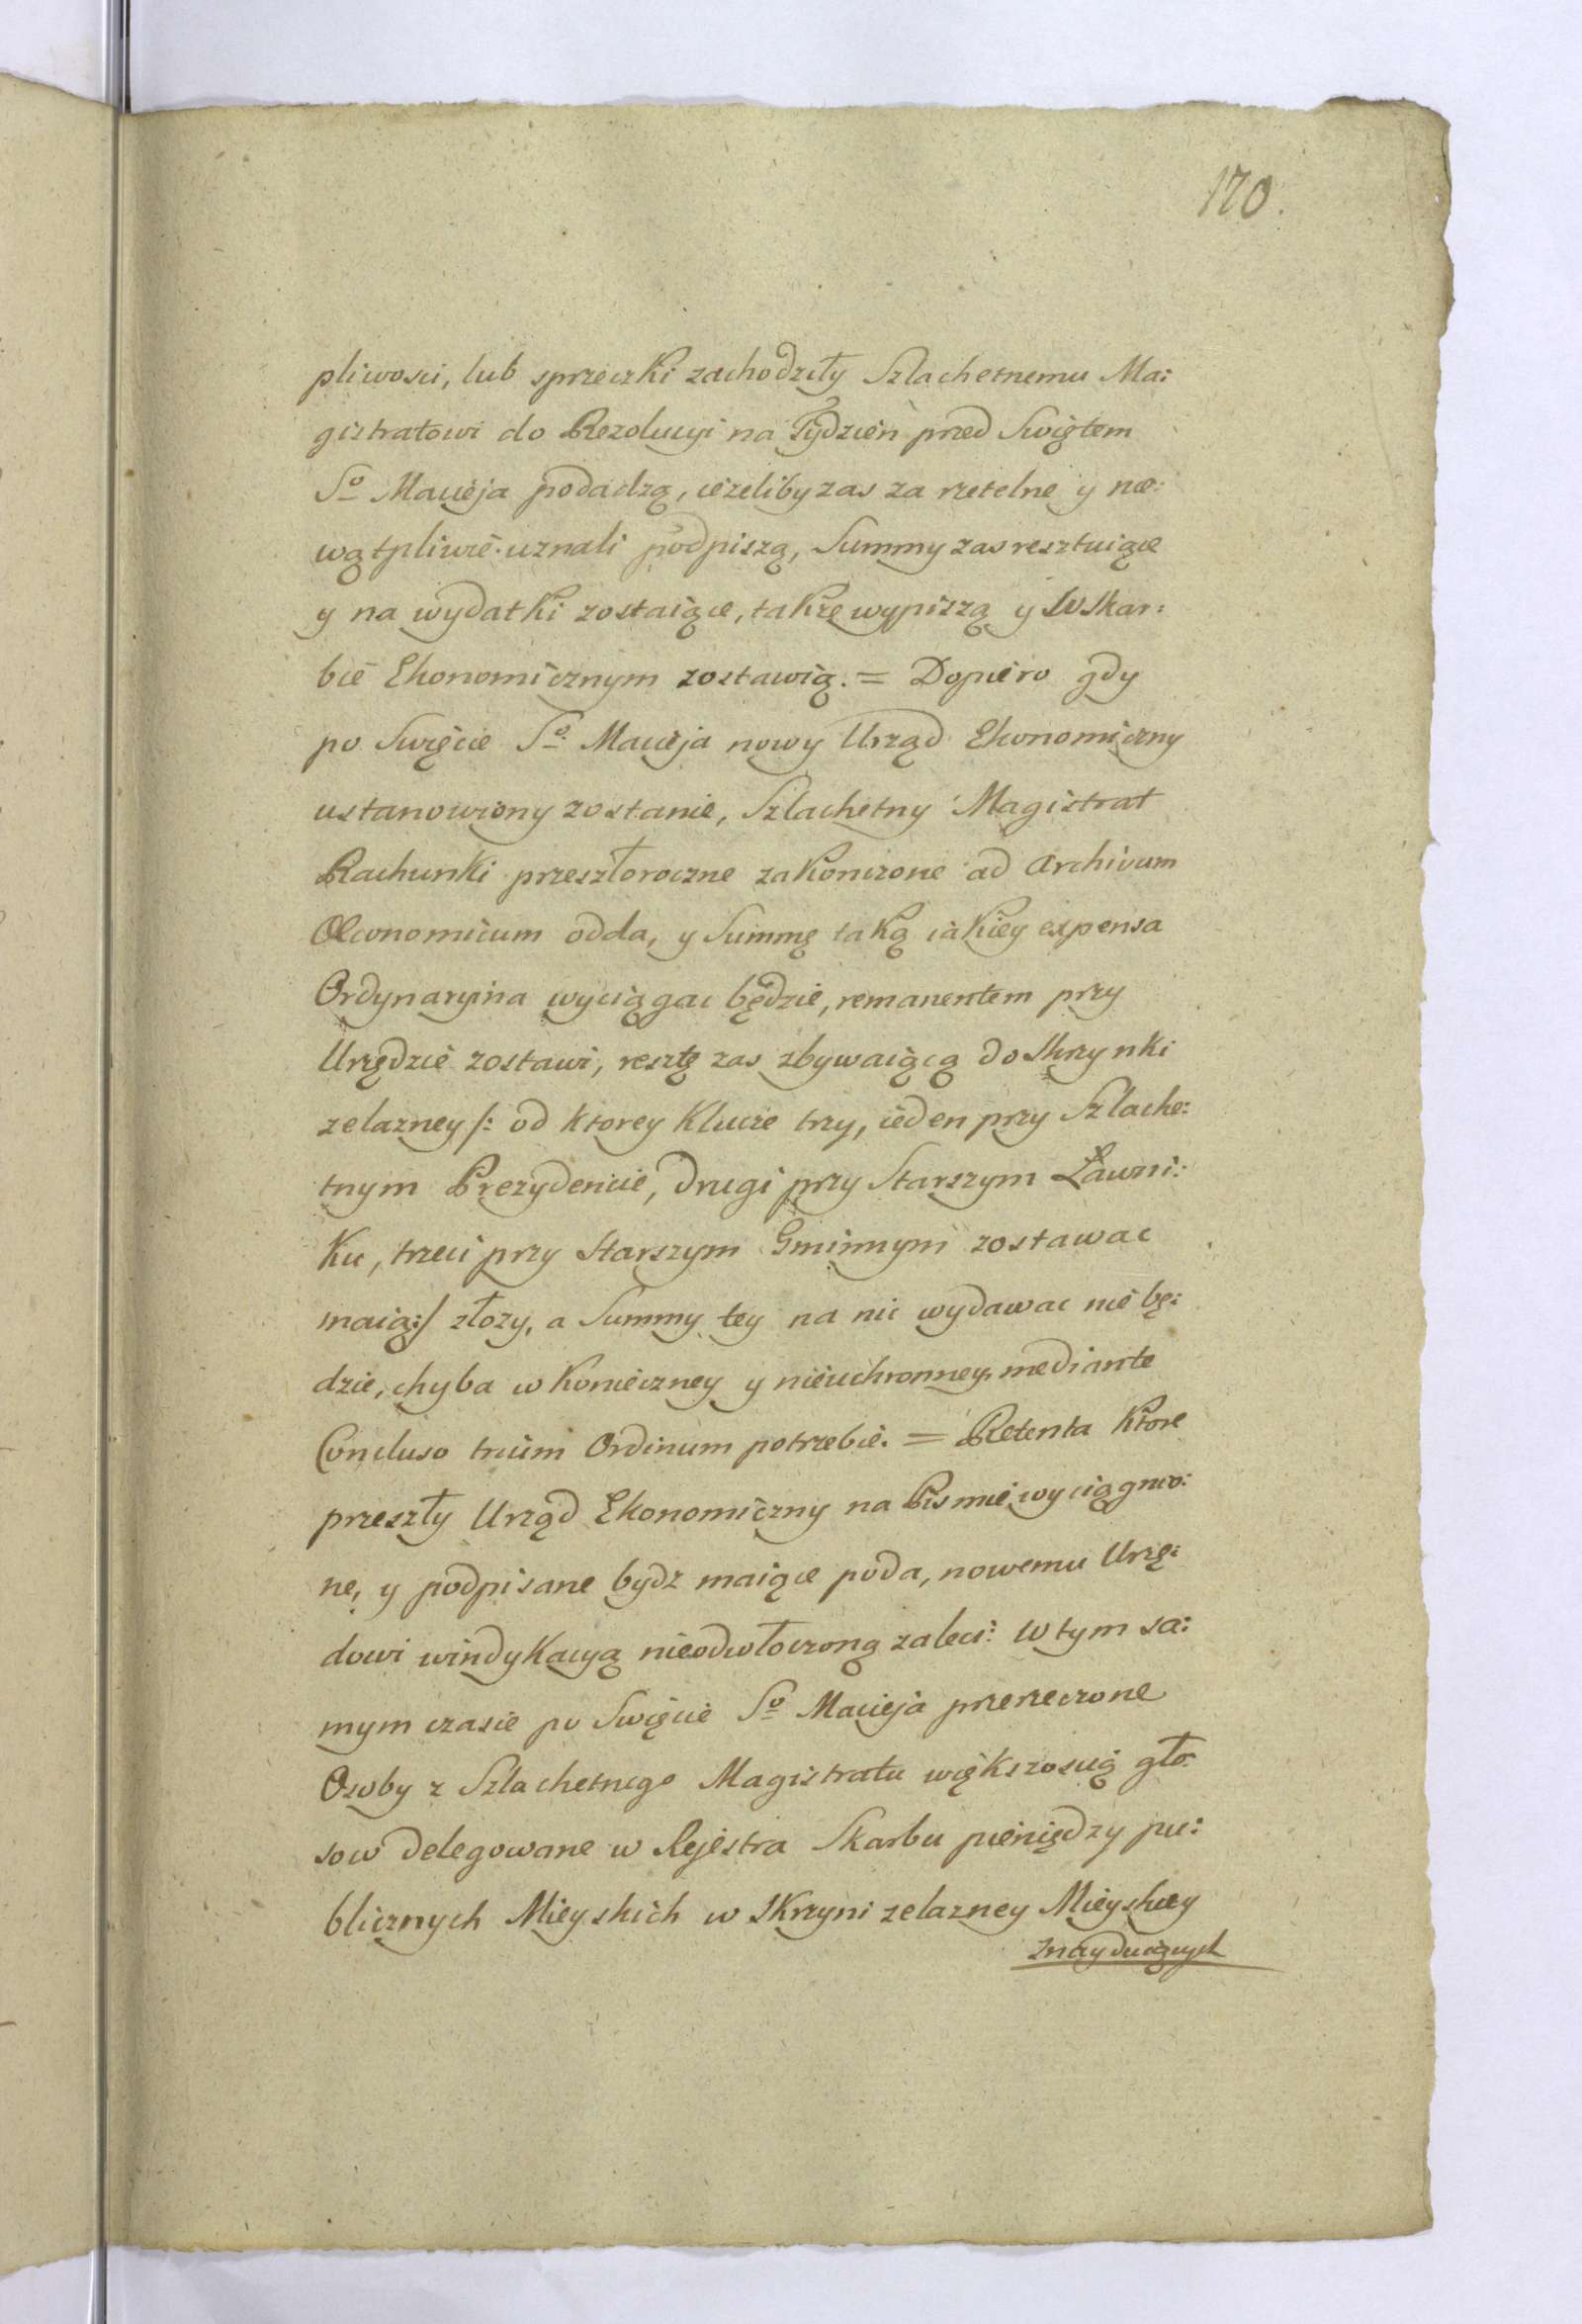 170.
pliwosci, lub sprzeczki zachodziły Szlachetnemu Ma:
gistratowi do Rezolucyi na Tydzień przed Swiętem
So Macieja podadzą, ieżeliby zas za rzetelne y nie:
wątpliwie uznali podpiszą, Summy zas resztuiące
y na wydatki zostaiące, także wypiszą y w Skar:
bie Ekonomicznym zostawią. = Dopiero gdy
po Swięcie So Macieja nowy Urząd Ekonomiczny
ustanowiony zostanie, Szlachetny Magistrat
Rachunki przeszłoroczne zakonczone ad Archivum
Œconomicum odda, y Summę taką iakiey expensa
Ordynaryina wyciągac będzie, remanentem przy
Urzędzie zostawi, resztę zas zbywaiącą do Skrzynki
zelazney /: od ktorey Klucze trzy, ieden przy Szlache:
tnym Prezydencie, drugi przy Starszym Ławni:
ku, trzeci przy Starszym Gminnym zostawac
maią:/ złozy, a Summy tey na nic wydawac nie bę:
dzie, chyba w Konieczney y nieuchronney, mediante
Concluso trium Ordinum potrzebie. = Retenta Ktore
przeszły Urząd Ekonomiczny na Pismie wyciągnio:
ne, y podpisane bydz maiące poda, nowemu Urzę:
dowi windykacyą nieodwłoczoną zaleci: w tym sa:
mym czasie po Swięcie So Macieja przerzeczone
Osoby z Szlachetnego Magistratu większoscią gło:
sow delegowane w Rejestra Skarbu pieniędzy pu:
blicznych Mieyskich w Skrzyni zelazney Mieyskiey
znayduiących